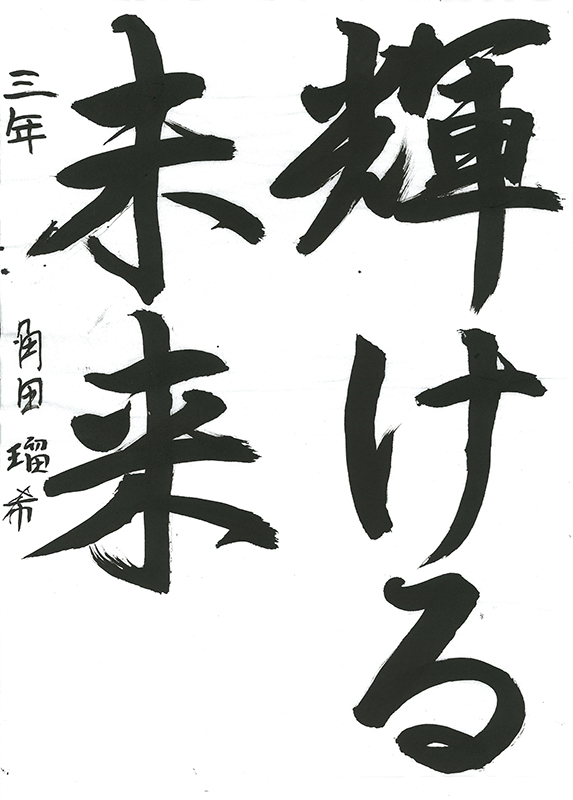 輝ける
未来
三年 角田瑠希